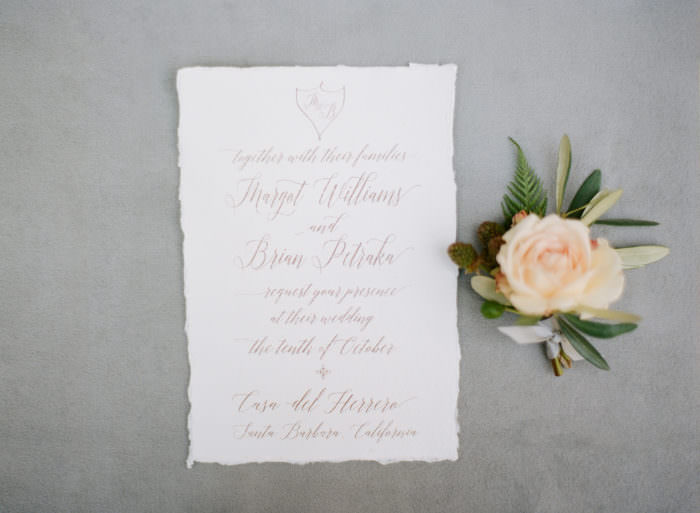 together with their families
Margot Williams
and
Brian Petraka
request your presence
at their wedding
the tenth of October
Casa del Herrero
Santa Barbara, California